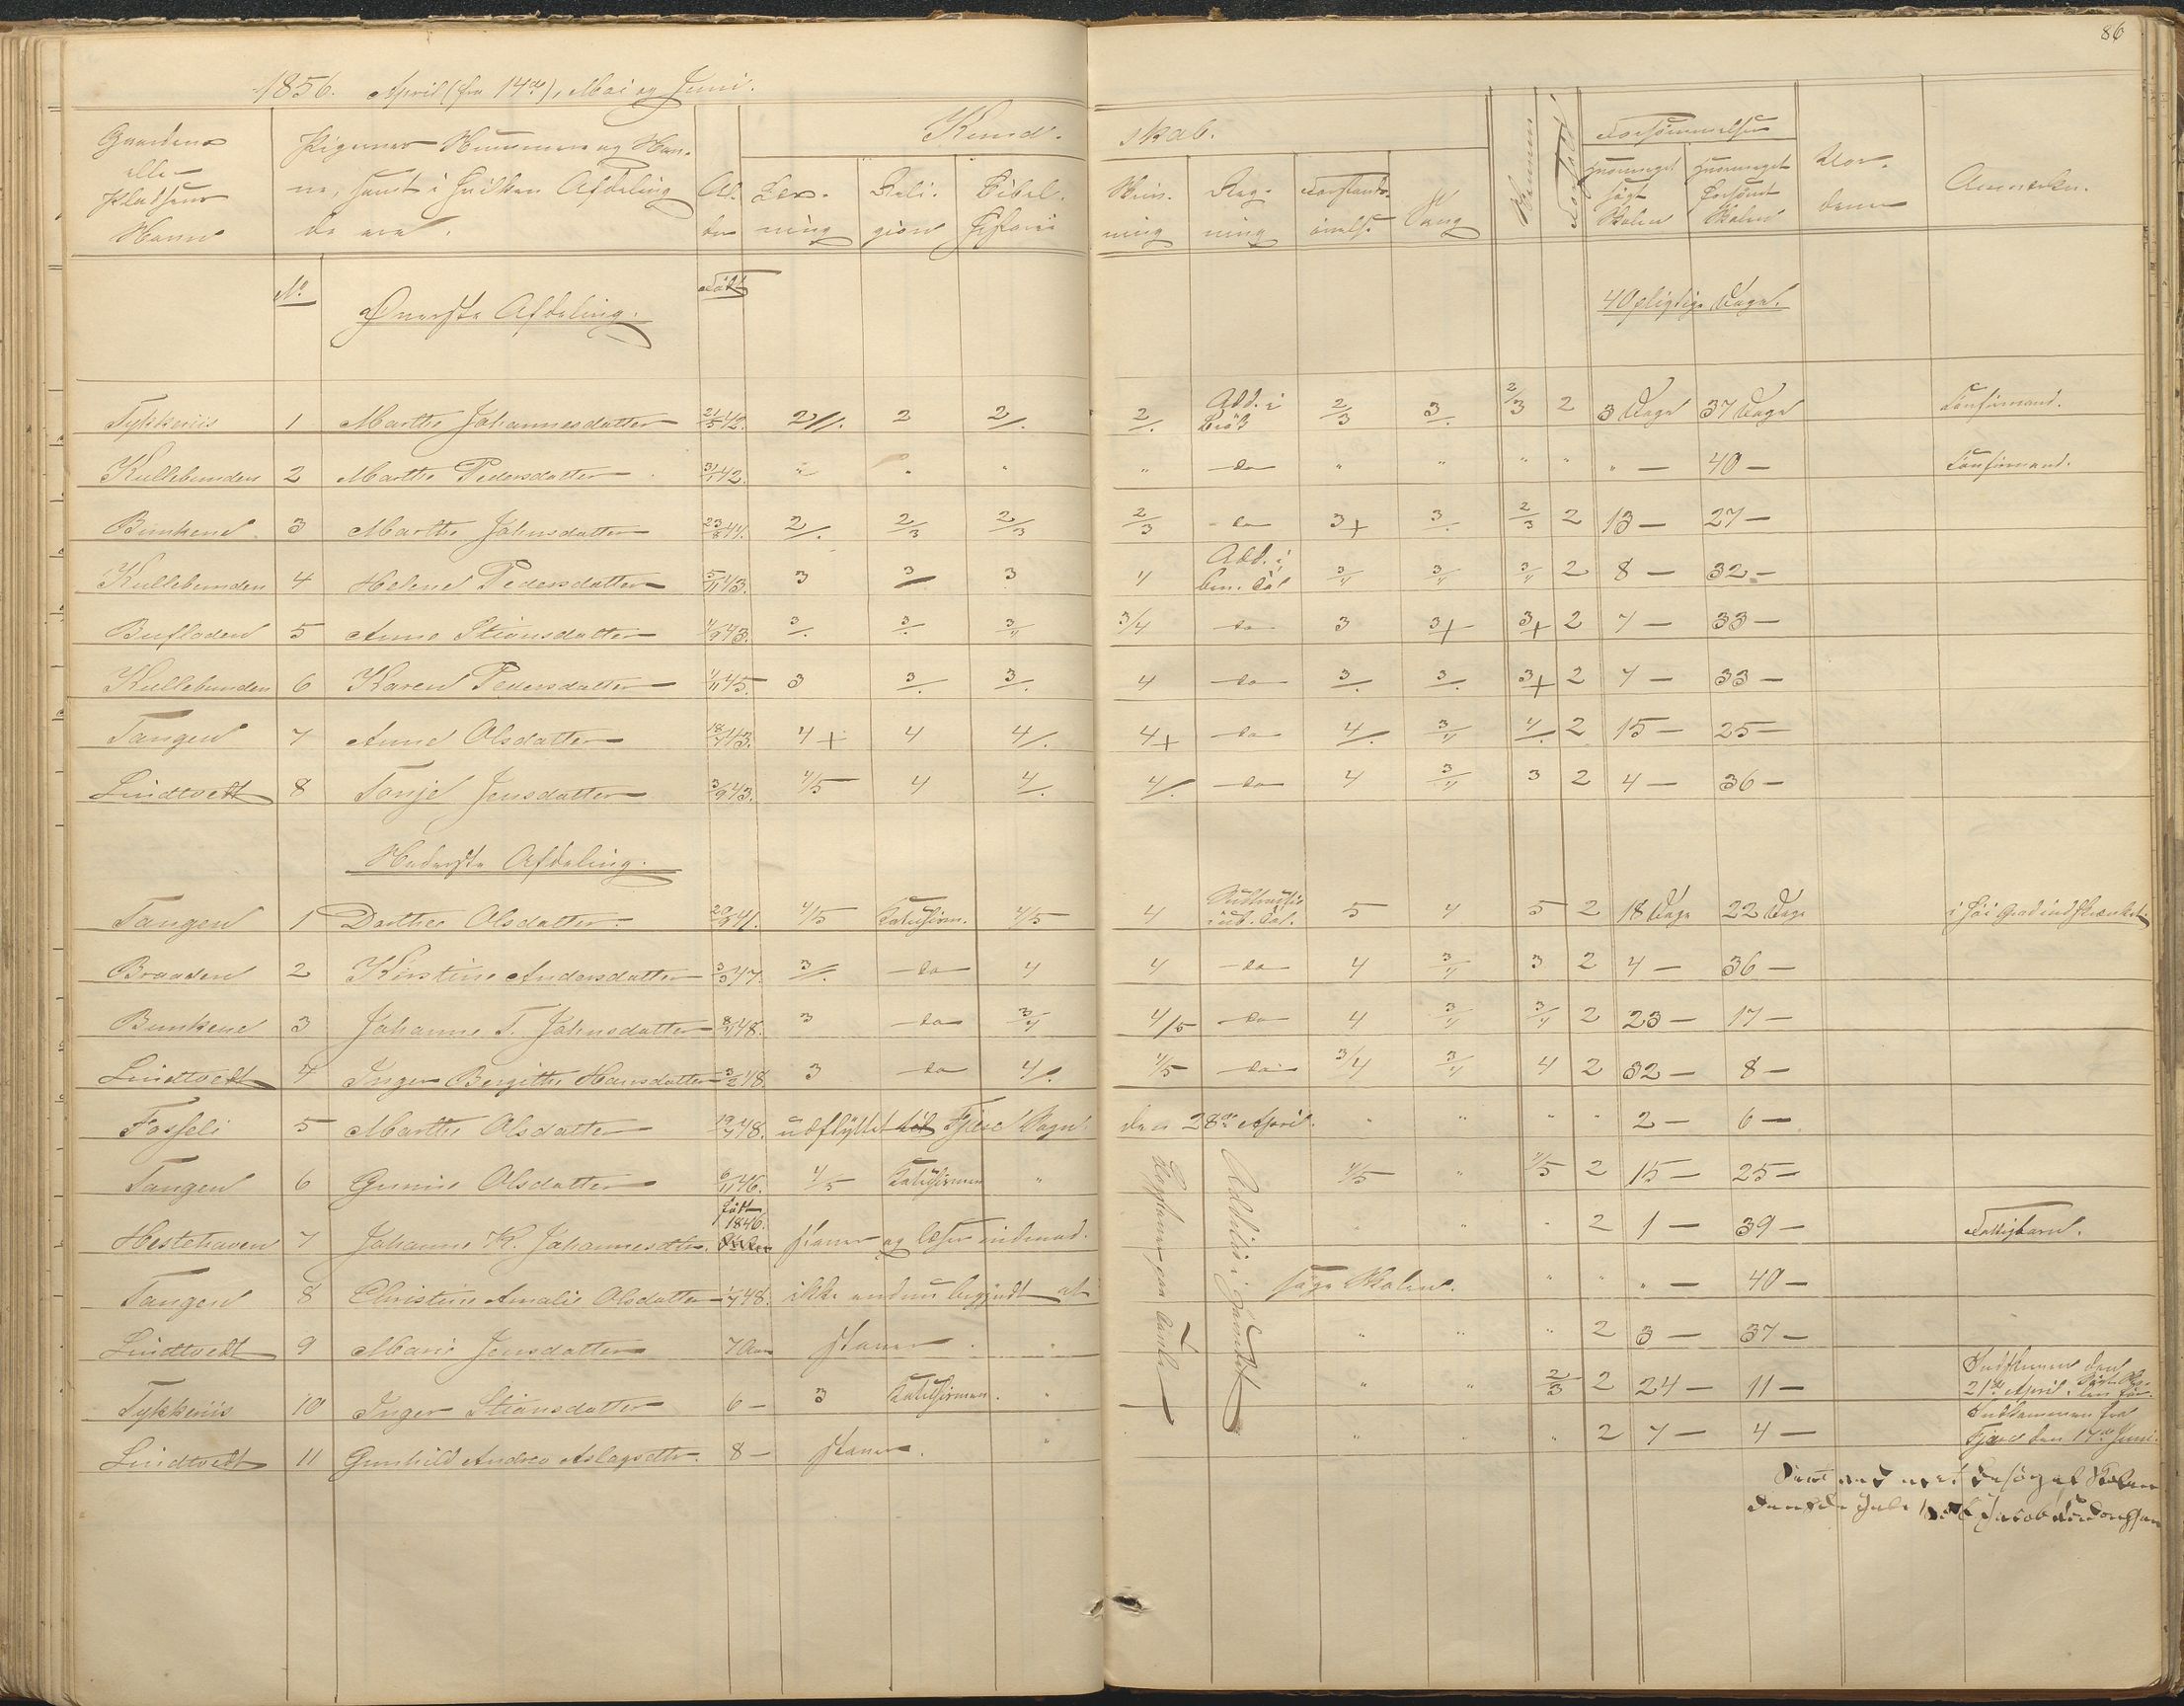 86
1856. April (fra 14de), Mai og Juni.
Gaardens eller Pladsens Navn | Pigernes Nummere og Navne, samt i hvilken Afdeling de ere. | Alder | Kundskab. | Forsømmelser | Vordene | Anmærkn.
Læsning | Religion | Bibelhistorie | Skrivning | Regning | Forstandsøvelse | Sang | Nemme | Forhold | hvormeget søgt Skolen | hvormeget forsømt Skolen
No | Øverste Afdeling. | Født | 40 pligtige Dage.
Tykkeriis 1 Marthe Johannesdatter 21/5 42. 2//. 2 2/. 2/. Add. i Brøk 2/3 3/. 2/3 2 3 Dage 37 Dage Confirmand.
Kullebunden 2 Marthe Pedersdatter 31/1 42. " " " " do " " " " " — 40 — Confirmand.
Bunkene 3 Marthe Johnsdatter 23/8 44. 2/. 2/3 2/3 2/3 do 3+ 3/. 2/3 2 13 — 27 —
Kullebunden 4 Helene Pedersdatter 5/11 43. 3 3/ 3 4 Add. i ben. Tal 3/4 3/4 3/4 2 8 — 32 —
Bufloden 5 Anne Stiansdatter 4/9 43. 3/. 3/. 3/4 3/4 do 3 3+ 3+ 2 7 — 33 —
Kullebunden 6 Karen Pedersdatter 1/11 45. 3 3/. 3/. 4 do 3/. 3/. 3+ 2 7 — 33 —
Tangen 7 Anne Olsdatter 18/7 43. 4+ 4 4/. 4+ do 4/. 3/4 4/. 2 15 — 25 —
Lindtvedt 8 Tonje Jensdatter 3/9 43. 4/5 4 4/. 4/. do 4 3/4 3 2 4 — 36 —
Nederste Afdeling.
Tangen 1 Dorthe Olsdatter. 20/9 41. 4/5 Katechism. 4/5 4 5 4 5 2 18 Dage 22 Dage i høi Grad indskrænket.
Braaden 2 Kirstine Andersdatter 3/3 47. 3//. do 4 4 do 4 3/4 3 2 4 — 36 —
Bunkene 3 Johanne T. Johnsdatter 8/11 48. 3 do 3/4 4/5 do 4 3/4 3/4 2 23 — 17 —
Lindtvedt 4 Inger Bergitte Hansdatter 3/2 48. 3 do 4/. 4/5 do 3/4 3/4 4 2 32 — 8 —
Fosseli 5 Marthe Olsdatter 19/7 48. udflyttet til Fjære Sogn den 28de April. " " " " 2 — 6 —
Tangen 6 Gunnie Olsdatter 6/11 46. 4/5 Katechismen " 4/5 " 4/5 2 15 — 25 —
Hestehaven 7 Johanne K. Johannesdtr. født 1846. staver og læser indenad. " " " 2 1 — 39 — Fattigbarn.
Tangen 8 Christine Amalie Olsdatter 1/7 48. ikke endnu begyndt at søge Skolen. " " " — 40 —
Lindtvedt 9 Marie Jensdatter 7 Aar staver " " " " 2 3 — 37 —
Tykkeriis 10 Inger Stiansdatter 6 — 3 Katechismen. " " " 2/3 2 24 — 11 — Indkommen den 21de April.
Lindtvedt 11 Gunhild Andrea Aslagsdtr. 8 — staver. " " " " 2 7 — 4 — Indkommen fra Fjære den 17de Juni.
paa Tavle
Addition i